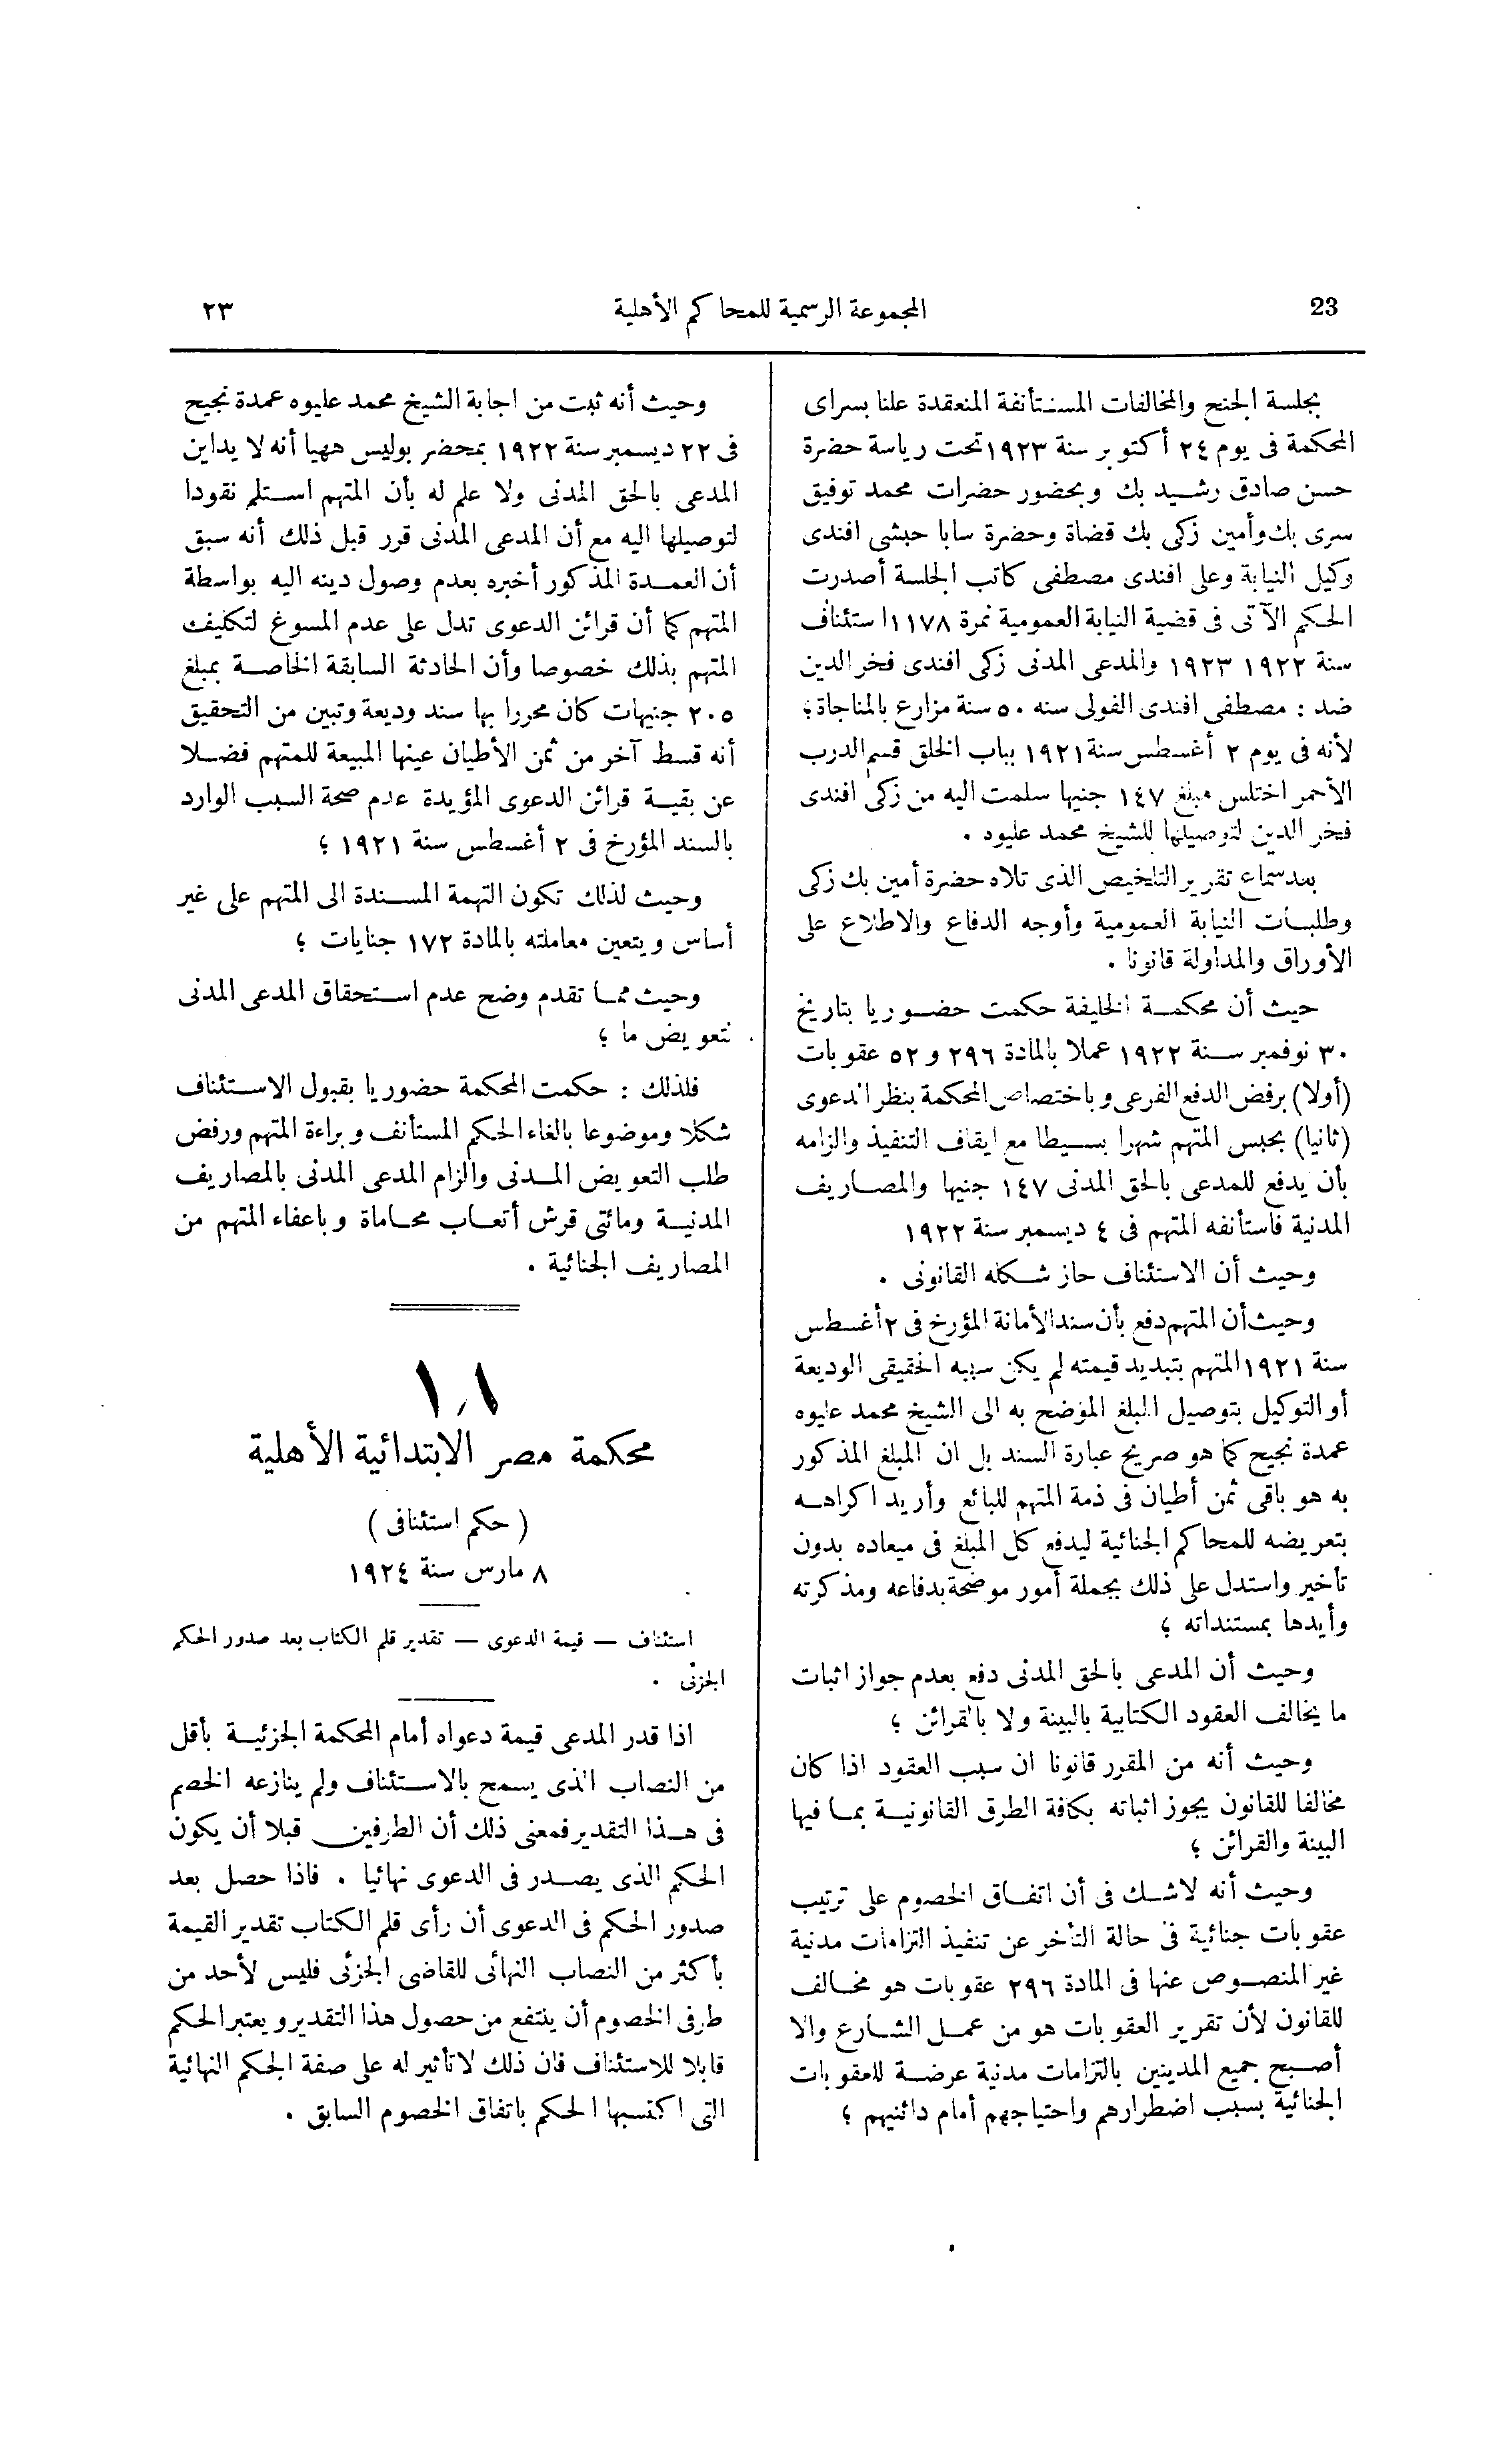 23
المجموعة الرسمية للمحاكم الأهلية
٢٣
بجلسة الجنح والمخالفات المستأنفة المنعقدة علنا بسراى
المحكمة فى يوم ٢٤ أكتوبر سنة ١٩٢٣ تحت رياسة حضرة
حسن صادق رشيد بك وبحضور حضرات محمد توفيق
سرى بك وأمين زكى بك قضاة وحضرة سابا حبشى افندى
وكيل النيابة وعلى افندى مصطفى كاتب الجلسة أصدرت
الحكم الآتى فى قضية النيابة العمومية نمرة ١١٧٨ استئناف
سنة ١٩٢٢ ١٩٢٣ والمدعى المدنى زكى افندى فخر الدين
ضد : مصطفى افندى الفولى سنه ٥٠ سنة مزارع بالمناجاة ؛
لأنه فى يوم ٢ أغسطس سنة ١٩٢١ بباب الخلق قسم الدرب
الأحمر اختلس مبلغ ١٤٧ جنيها سلمت اليه من زكى افندى
فخر الدين لتوصيلها للشيخ محمد عليوه .
بعد سماع تقرير التلخيص الذى تلاه حضرة أمين بك زكى
وطلبات النيابة العمومية وأوجه الدفاع والاطلاع على
الأوراق والمداولة قانونا .
حيث أن محكمة الخليفة حكمت حضوريا بتاريخ
٣٠ نوفمبر سنة ١٩٢٢ عملا بالمادة ٢٩٦ و ٥٢ عقوبات
(أولا) برفض الدفع الفرعى وباختصاص المحكمة بنظر الدعوى
(ثانيا) بحبس المتهم شهرا بسيطا مع ايقاف التنفيذ والزامه
بأن يدفع للمدعى بالحق المدنى ١٤٧ جنيها والمصاريف
المدنية فاستأنفه المتهم فى ٤ ديسمبر سنة ١٩٢٢
وحيث أن الاستئناف حاز شكله القانونى .
وحيث أن المتهم دفع بأن سند الأمانة المؤرخ فى ٢ أغسطس
سنة ١٩٢١ المتهم بتبديد قيمته لم يكن سببه الحقيقى الوديعة
أو التوكيل بتوصيل المبلغ المؤضح به الى الشيخ محمد عليوه
عمدة نجيح كما هو صريح عبارة السند بل ان المبلغ المذكور
به هو باقى ثمن أطيان فى ذمة المتهم للبائع وأريد اكراهه
بتعريضه للمحاكم الجنائية ليدفع كل المبلغ فى ميعاده بدون
تأخير واستدل على ذلك بجملة أمور موضحة بدفاعه ومذكرته
وأيدها بمستنداته ؛
وحيث أن المدعى بالحق المدنى دفع بعدم جواز اثبات
ما يخالف العقود الكتابية بالبينة ولا بالقرائن ؛
وحيث أنه من المقرر قانونا ان سبب العقود اذا كان
مخالفا للقانون يجوز اثباته بكافة الطرق القانونية بما فيها
البينة والقرائن ؛
وحيث أنه لاشك فى أن اتفاق الخصوم على ترتيب
عقوبات جنائية فى حالة التأخر عن تنفيذ التزامات مدنية
غير المنصوص عنها فى المادة ٢٩٦ عقوبات هو مخالف
للقانون لأن تقرير العقوبات هو من عمل الشارع والا
أصبح جميع المدينين بالتزامات مدنية عرضة للعقوبات
الجنائية بسبب اضطرارهم واحتياجهم أمام دائنيهم ؛
وحيث أنه ثبت من اجابة الشيخ محمد عليوه عمدة نجيح
فى ٢٢ ديسمبر سنة ١٩٢٢ بمحضر بوليس ههيا أنه لا يداين
المدعى بالحق المدنى ولا علم له بأن المتهم استلم نقودا
لتوصيلها اليه مع أن المدعى المدنى قرر قبل ذلك أنه سبق
أن العمدة المذكور أخبره بعدم وصول دينه اليه بواسطة
المتهم كما أن قرائن الدعوى تدل على عدم المسوغ لتكليف
المتهم بذلك خصوصا وأن الحادثة السابقة الخاصة بمبلغ
٢٠٥ جنيهات كان محررا بها سند وديعة وتبين من التحقيق
أنه قسط آخر من ثمن الأطيان عينها المبيعة للمتهم فضلا
عن بقية قرائن الدعوى المؤيدة عدم صحة السبب الوارد
بالسند المؤرخ فى ٢ أغسطس سنة ١٩٢١ ؛
وحيث لذلك تكون التهمة المسندة الى المتهم على غير
أساس ويتعين معاملته بالمادة ١٧٢ جنايات ؛
وحيث مما تقدم وضح عدم استحقاق المدعى المدنى
لتعويض ما ؛
فلذلك : حكمت المحكمة حضوريا بقبول الاستئناف
شكلا وموضوعا بالغاء الحكم المستأنف وبراءة المتهم ورفض
طلب التعويض المدنى والزام المدعى المدنى بالمصاريف
المدنية ومائتى قرش أتعاب محاماة وباعفاء المتهم من
المصاريف الجنائية .
١١
محكمة مصر الابتدائية الأهلية
( حكم استئنافى )
٨ مارس سنة ١٩٢٤
استئناف — قيمة الدعوى — تقدير قلم الكتاب بعد صدور الحكم
الجزئى .
اذا قدر المدعى قيمة دعواه أمام المحكمة الجزئية بأقل
من النصاب الذى يسمح بالاستئناف ولم ينازعه الخصم
فى هذا التقدير فمعنى ذلك أن الطرفين قبلا أن يكون
الحكم الذى يصدر فى الدعوى نهائيا . فاذا حصل بعد
صدور الحكم فى الدعوى أن رأى قلم الكتاب تقدير القيمة
بأكثر من النصاب النهائى للقاضى الجزئى فليس لأحد من
طرفى الخصوم أن ينتفع من حصول هذا التقدير ويعتبر الحكم
قابلا للاستئناف فان ذلك لا تأثير له على صفة الحكم النهائية
التى اكتسبها الحكم باتفاق الخصوم السابق .